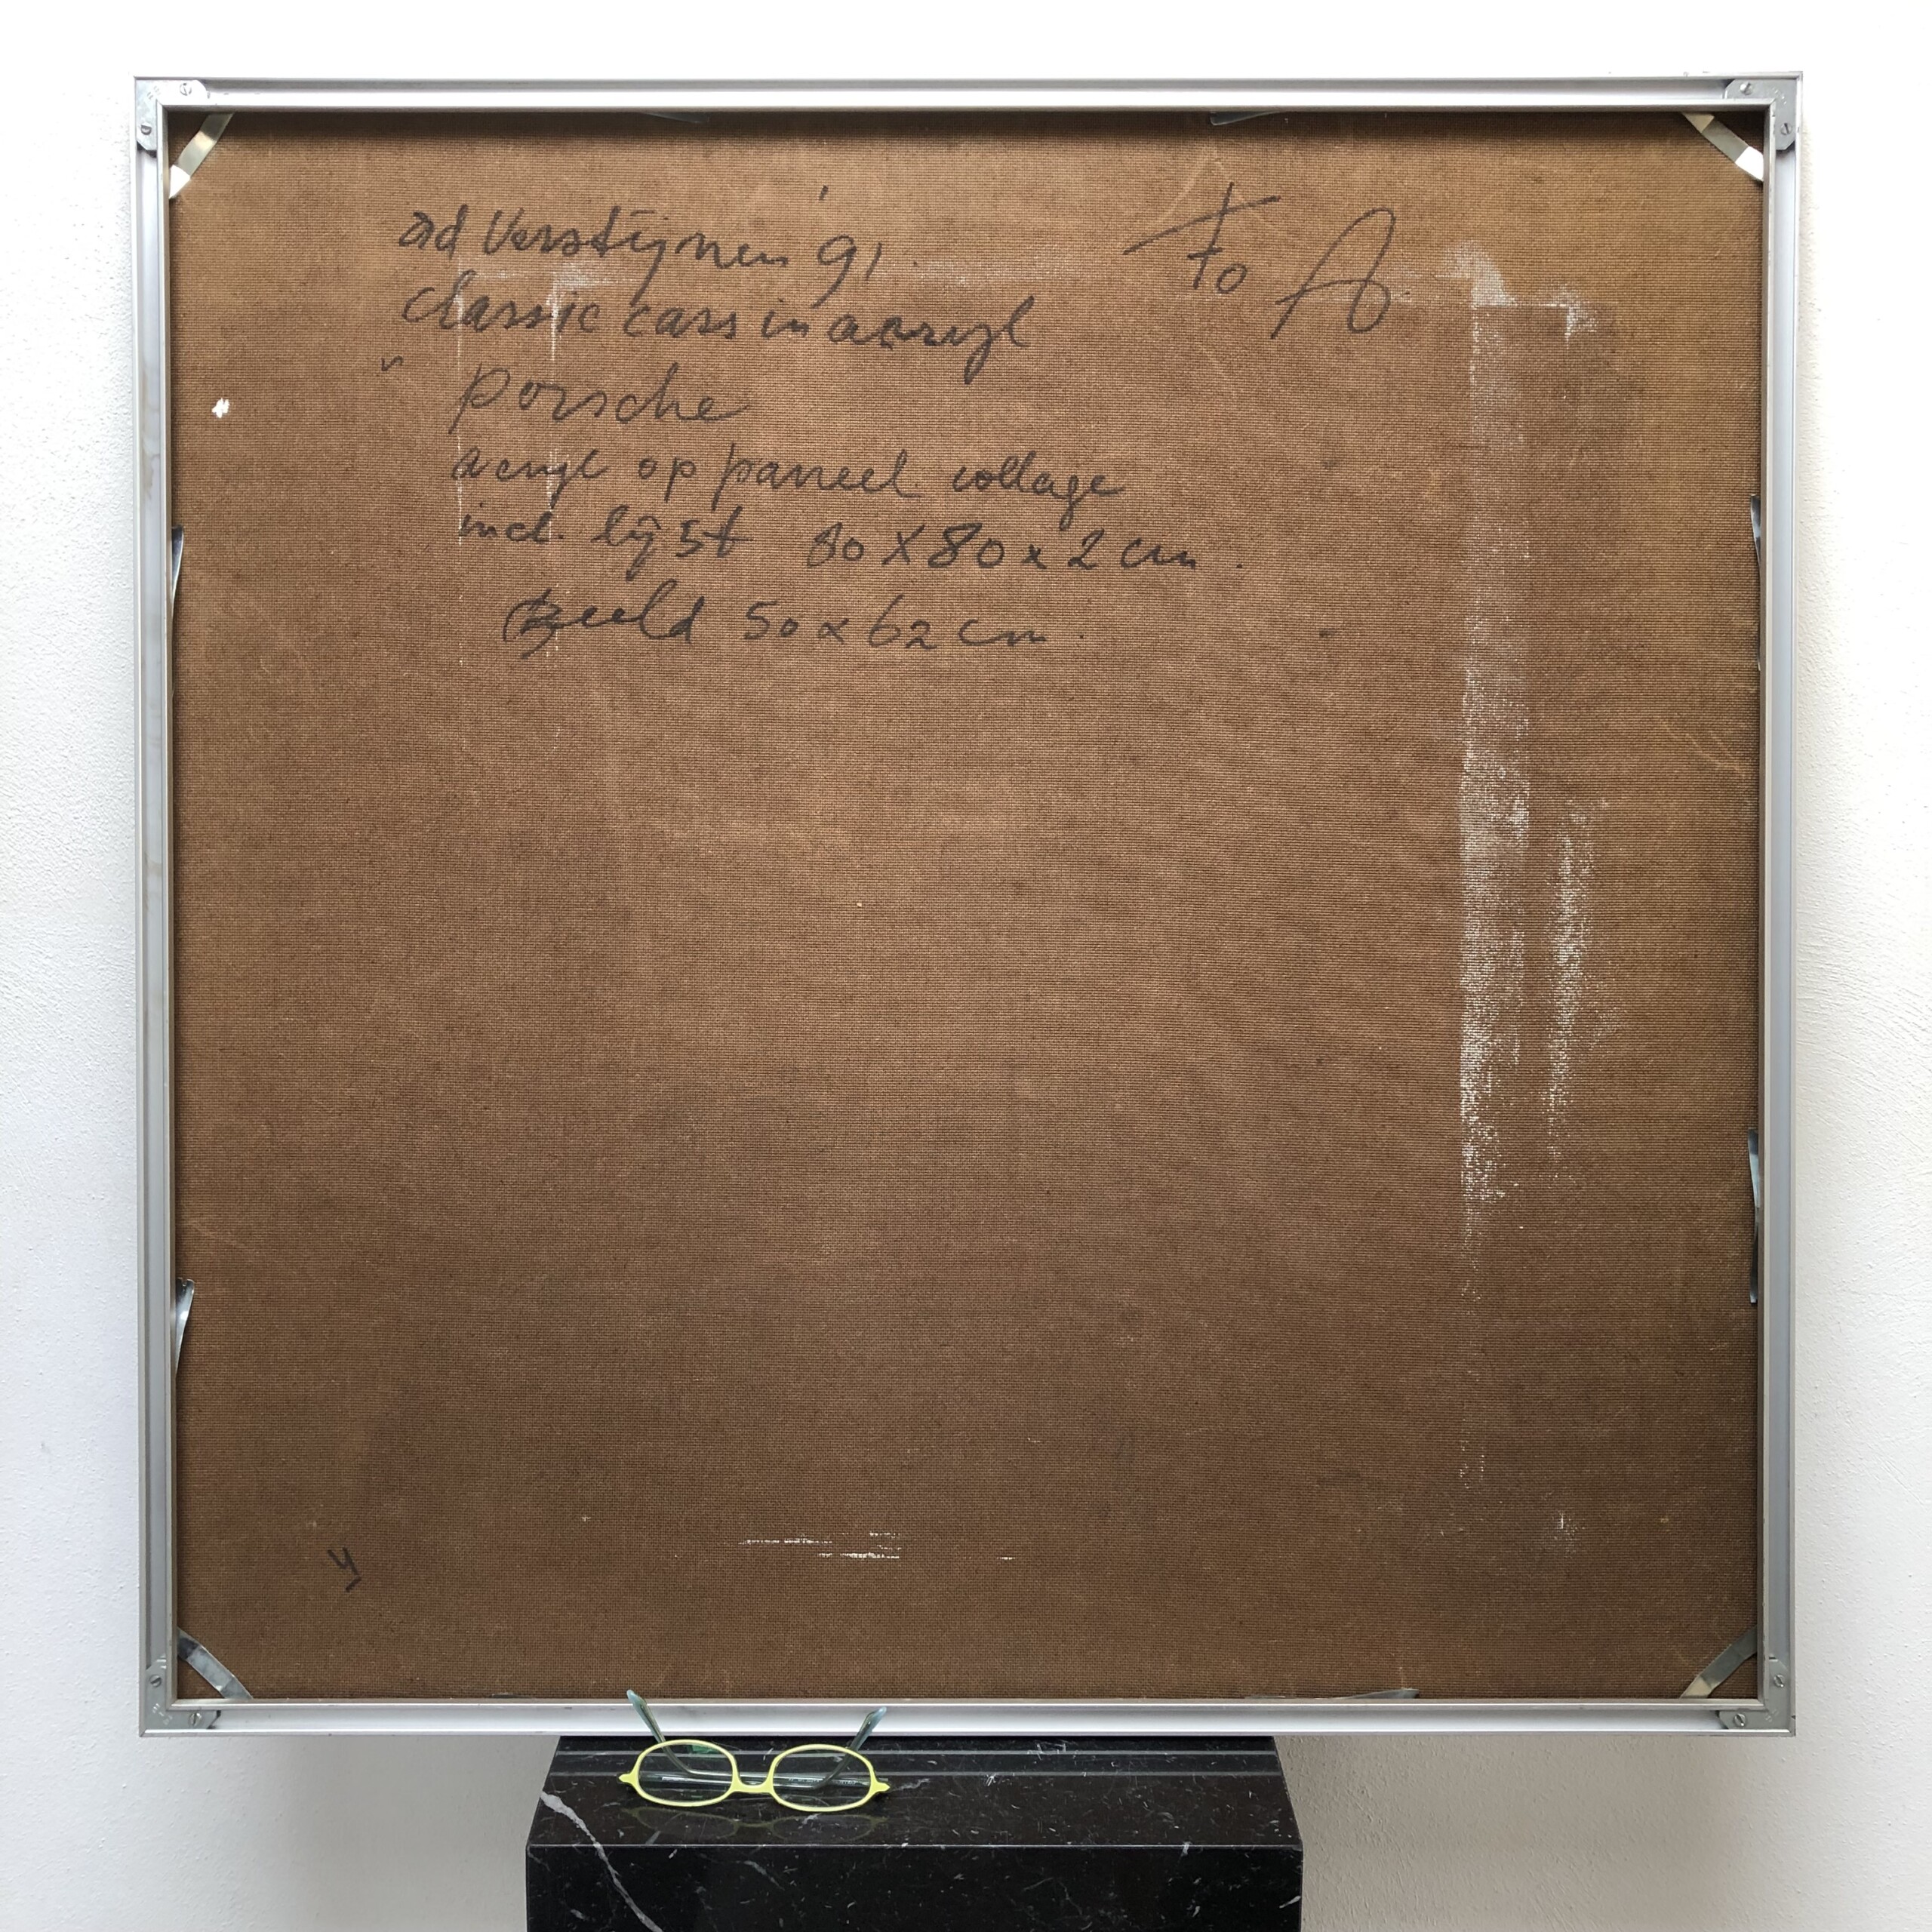 ad Verstijnen '91
to A
classic cars in acryl
" porsche
acryl op paneel collage
incl. lijst 80 x 80 x 2 cm.
Beeld 50 x 62 cm.